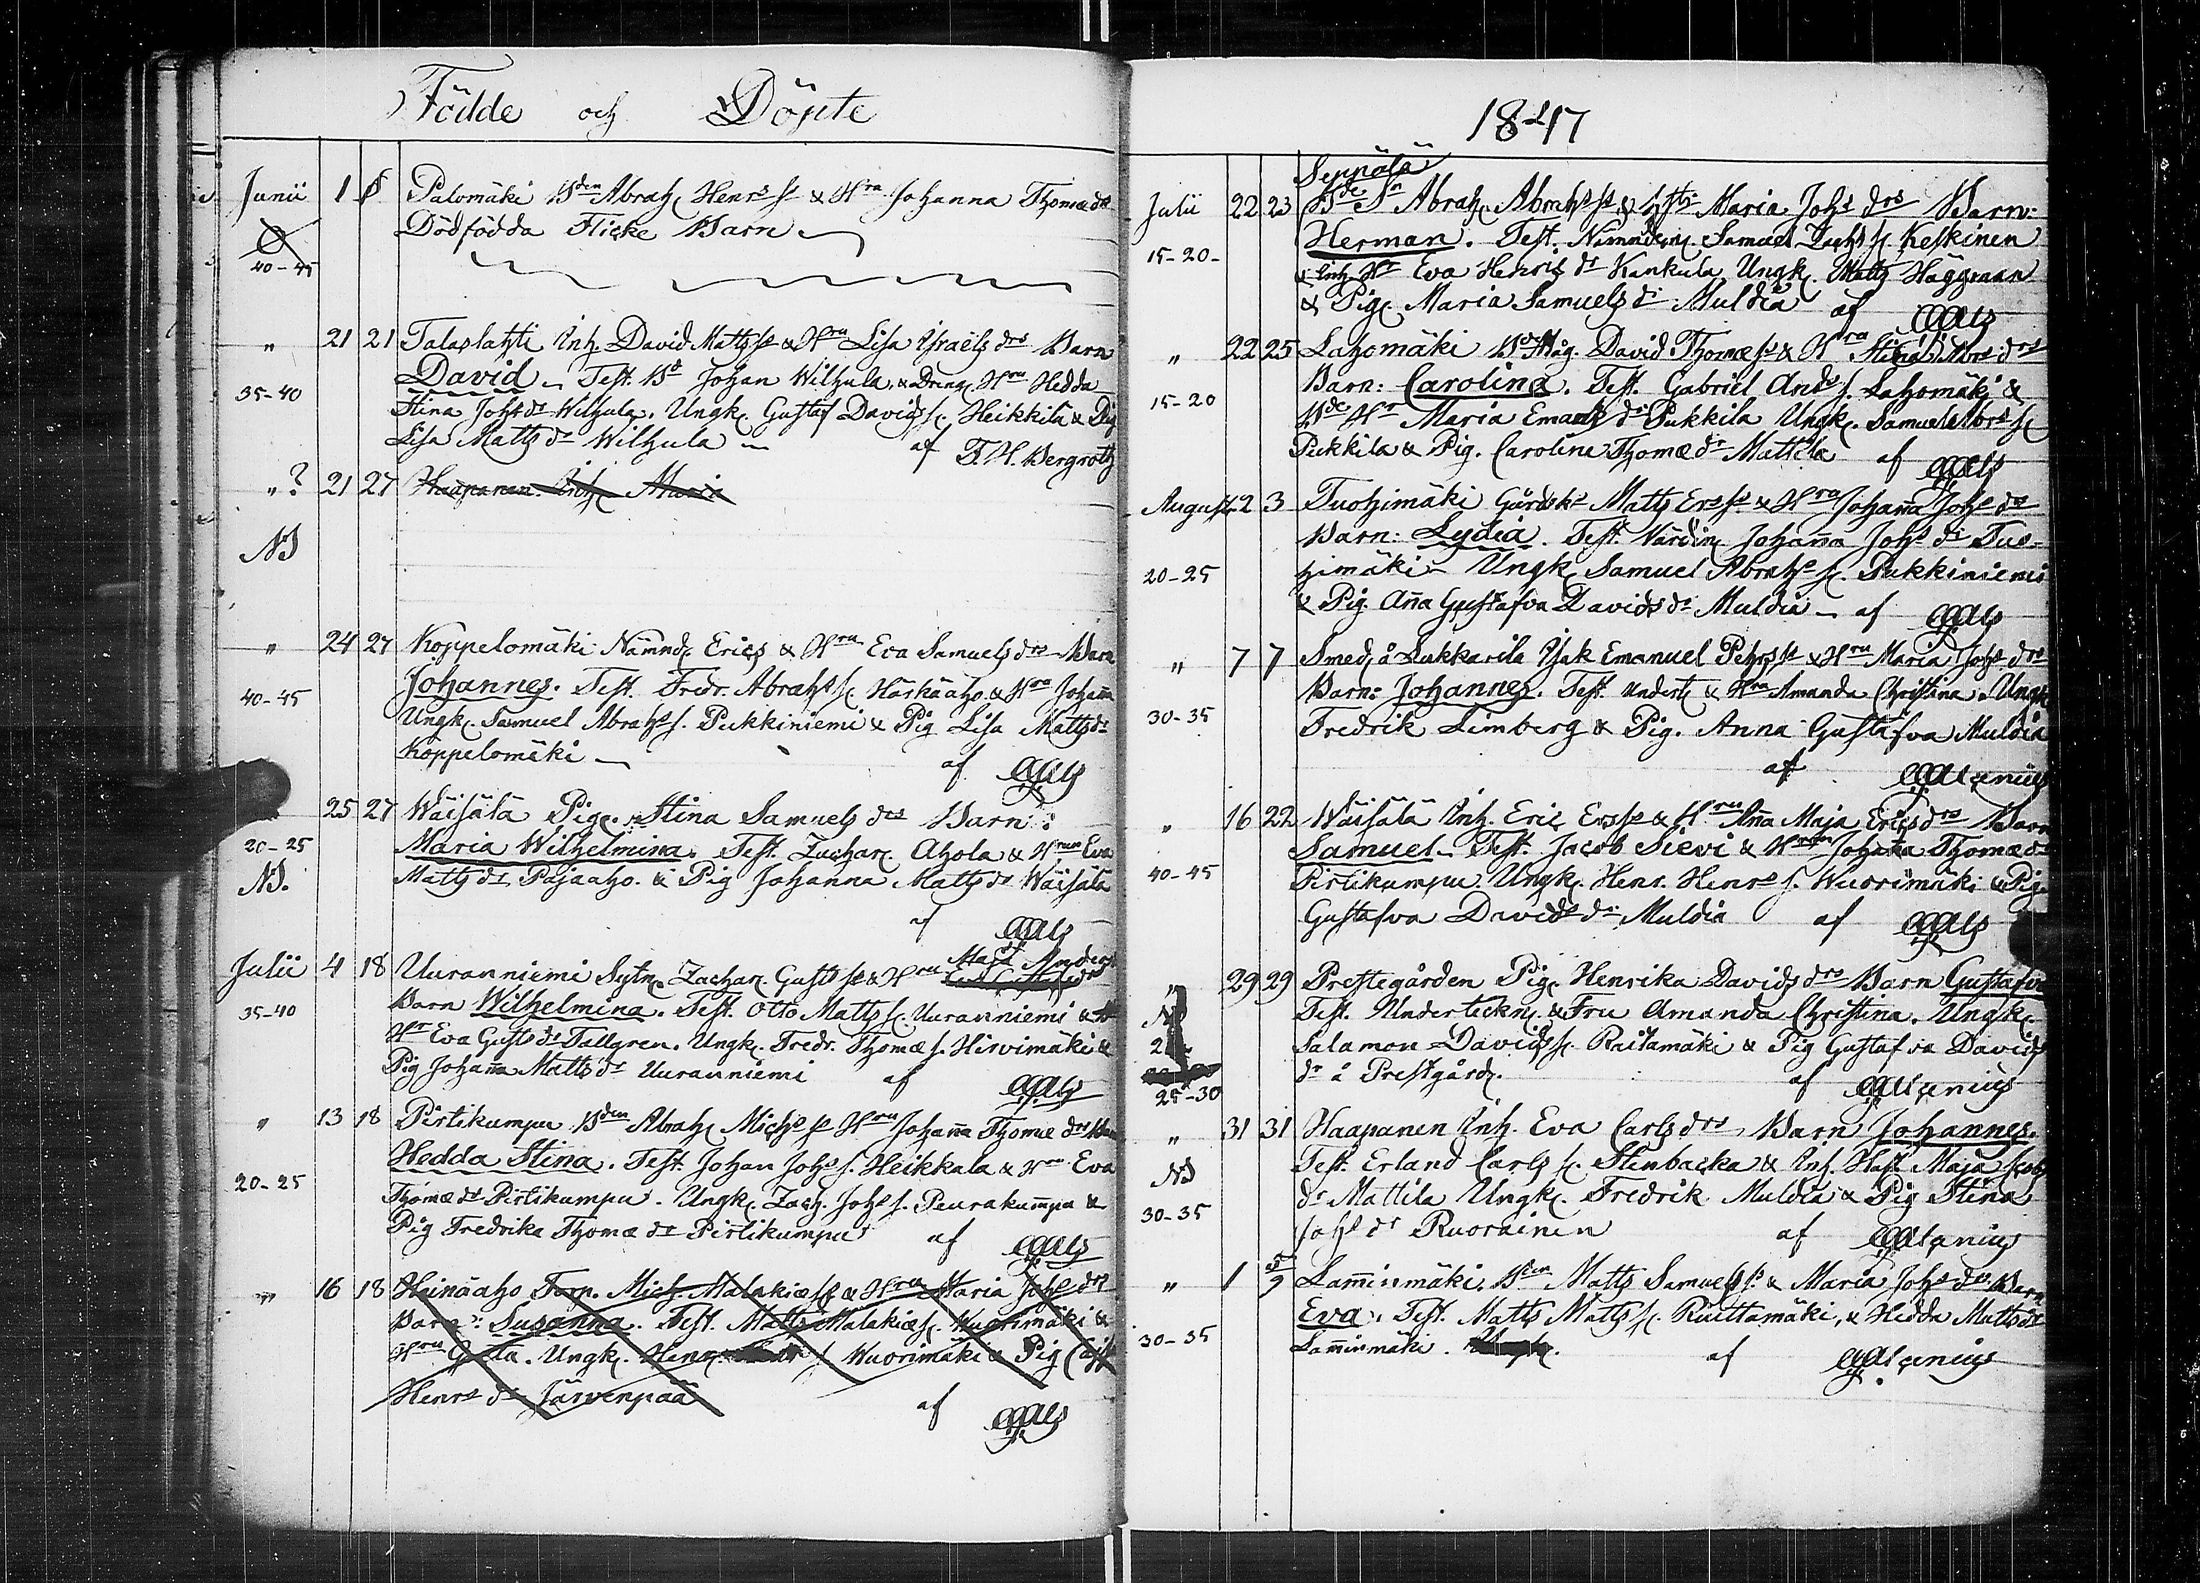 Födde och Döpte
Junii 1 Palomäki Bden Abrah. Henrs s. & Hru Johanna Thomædrs
Dödfödda Flicke Barn
40-45
" 21 21 Talaslahti Inh. David Matts s. & Hru Lisa Israels drs Barn
David Test. Bd Johan Wilhula, & Dreng. Hru Hedda
35-40
Stina Johs dr Wilhula. Ungk. Gustaf Davids s. Heikkilä & Pig
Lisa Matts dr Wilhula af F. H. Bergroth
"? 21 27 Haapanen Inh. Maria
NB
" 24 27 Koppelomäki Nämnd. Erics & Hru Eva Samuels drs Barn
Johannes. Test. Fredr. Abrahs s. Härkäaho & Hru Johañа
40-45
Ungk. Samuel Abrahs s. Pukkiniemi & Pig Lisa Matts dr
Koppelomäki af
25 27 Wäisälä Pig. Stina Samuels drs Barn:
20-25
Maria Wilhelmina. Test. Zachar. Ahola & Hrun Eva
NB.
Matts dr Pajaaho. & Pig Johanna Matts dr Wäisälä
af
Maja Anders
Julii 4 18 Uuranniemi Sytn. Zachar. Gusts s. & Hru
Barn Wilhelmina. Test. Otto Matts s. Uuranniemi &
35-40
Hr Eva Gusts dr Tallgren. Ungk. Fredr. Thomæ s. Hirvimäki &
Pig Johaña Matts dr Uuranniemi af
" 13 18 Pirtikumpu Bden Abrah. Michs s. Hru Johaña Thomæ drs Barn
Hedda Stina. Test. Johan Johs s. Heikkala & Hru Eva
20-25
Thomæ dr Pirtikumpu. Ungk. Zach. Johs s. Peurakum̃pu &
Pig Fredrika Thomæ dr Pirtikumpu af
" 16 18 Heinäaho Torp. Mich. Malakiæ s. & Hru Maria Johs drs
Barn: Susanna. Test. Matts Malakiæ s. Wuorimäki &
Hru Greta. Ungk. Henr. s. Wuorimäki & Pig Cajsa
Henrs dr Järvenpää af
1847
Seppälä
Julii 22 23 Bde Sn Abrah. Abrahs s. & Hstr Maria Johs drs Barn:
Herman. Test. Nämndem. Samuel Zachs s. Keskinen
15-20-
& Enk. Hr Eva Henrics dr Kankula, Ungk. Matts Häggman
& Pig. Maria Samuels dr Muldia af
" 22 25 Lahomäki Bde Måg. David Thomæ s. & Hru Stina Abrs drs
Barn: Carolina. Test. Gabriel Ands s. Lahomäki &
15-20
Bde Hr Maria Emanls dr Pukkila Ungk. Samuel Abrs s.
Pukkila & Pig. Carolina Thomæ dr Mattila af
Augusti 2 3 Tuohimäki Gårdsbr Matts Ers s. & Hru Johaña Johs drs
Barn: Lydia. Test. Värdin. Johaña Johs dr Tuo-
20-25
himäki Ungk. Samuel Abrahs s. Pukkiniemi
& Pig. Aña Gustafva Davids dr Muldia af
" 7 7 Smed. å Lukkarila Isak Emanuel Pehrs s. & Hru Maria Johs drs
Barn: Johannes. Test. Undert. & Hru Amanda Christina. Ungk.
30-35
Fredrik Limberg & Pig. Anna Gustafva Muldia
af
" 16 22 Wäisälä Inh. Eric Ers s. & Hru Aña Maja Erics drs Barn
Samuel. Test. Jacob Sievi & Hrun Johaña Thomæ dr
40-45
Pirtikumpu. Ungk. Henr. Henrs s. Wuorimäki & Pig.
Gustafva Davids dr Muldia af
" 29 29 Prestegården Pig. Henrika Davids drs Barn Gustafva
Test. Underteckn. & Fru Amanda Christina. Ungk.
Salamon Davids s. Raitamäki & Pig Gustafva Davids
dr å Prestgård. af
25-30
" 31 31 Haapanen Inh. Eva Carls drs Barn Johannes.
Test. Erland Carls s. Stenbacka & Inh. Hust. Maja Jcobs
NB
dr Mattila Ungk. Fredrik Muldia & Pig Stina
30-35
Johs dr Ruorainen af
" 1 5/9 Lam̃inmäki. Bden Matts Samuels s. & Maria Johs drs Barn
Eva. Test. Matts Matts s. Ruittamäki, & Hedda Matts dr
30-35
Lam̃inmäki. af